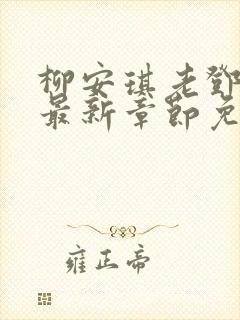 柳安琪老鄧
最新章節免
雍正帝